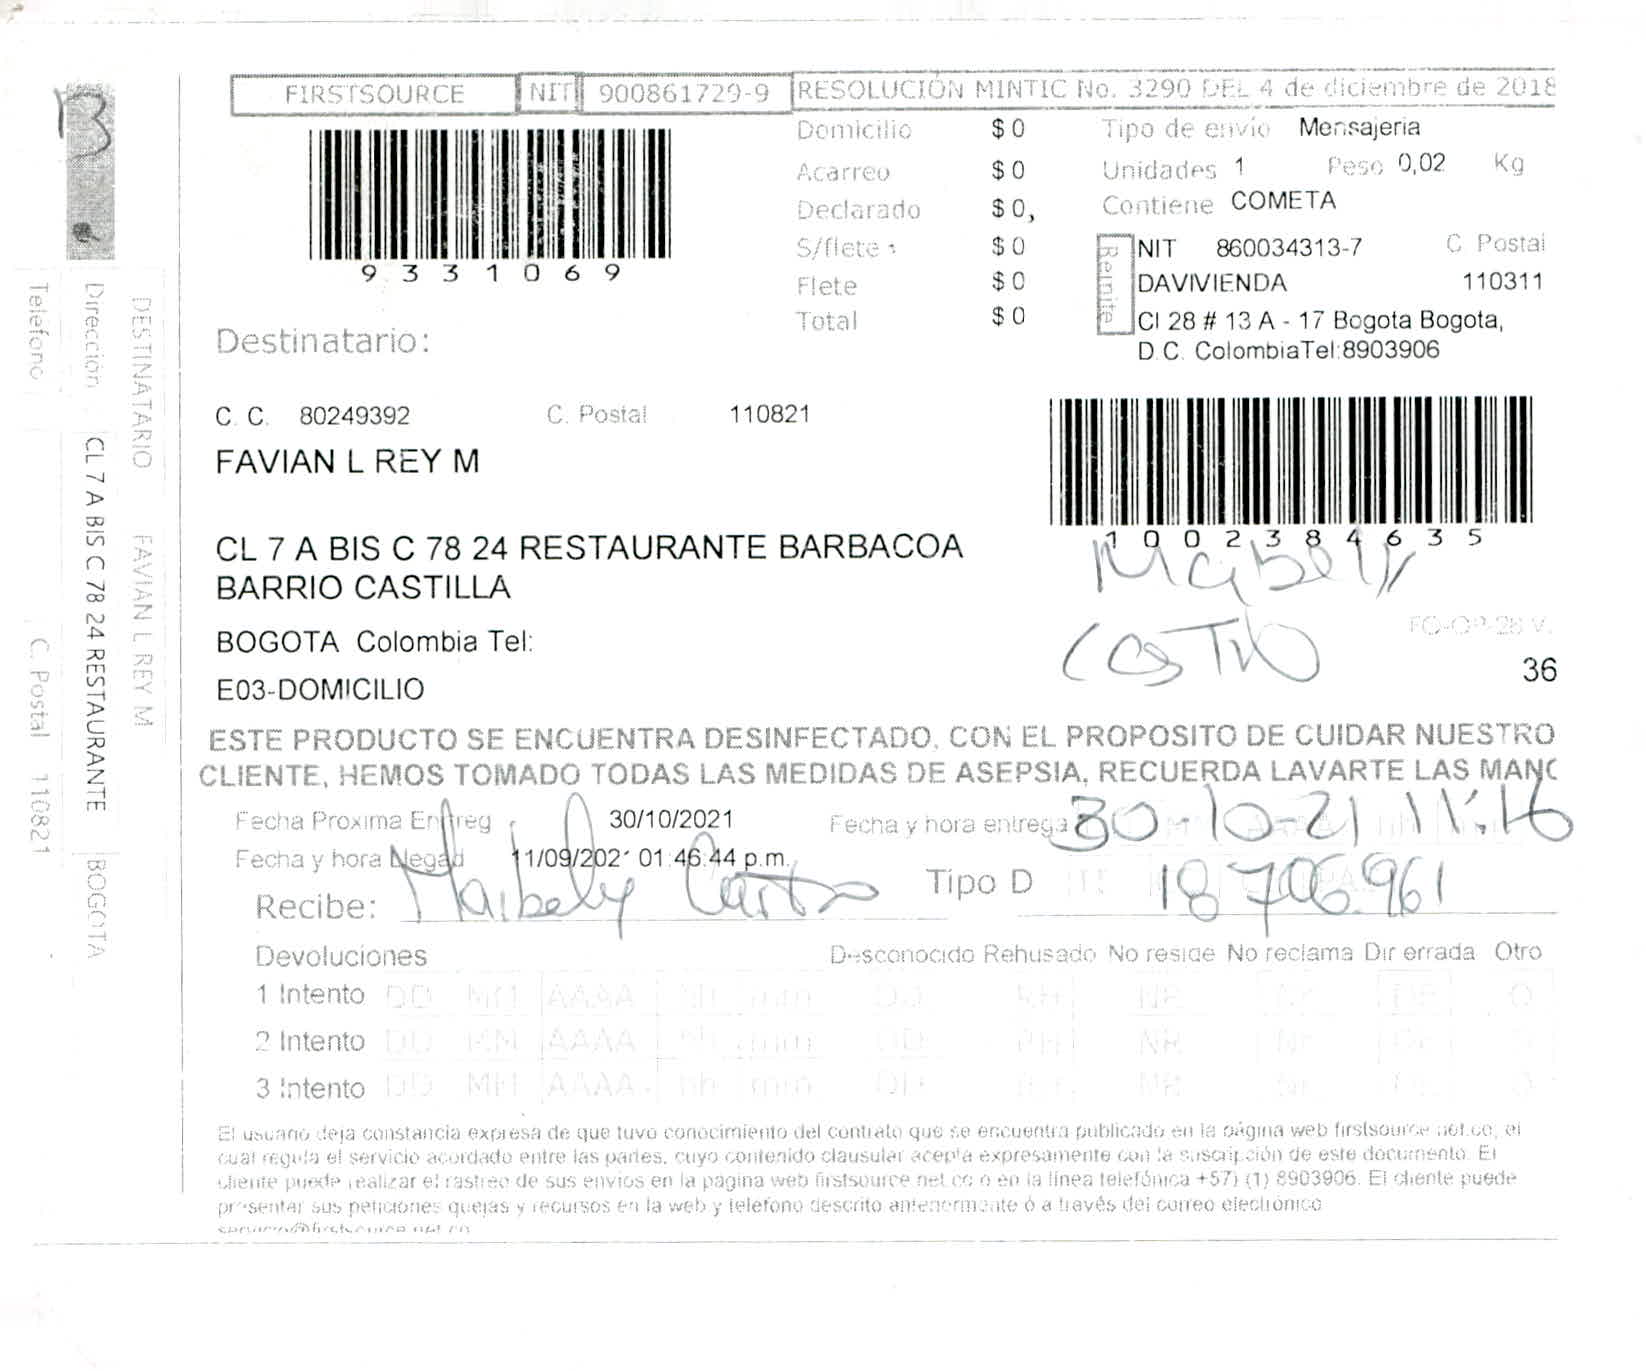 FIRSTSOURCE NIT 900861729-9 RESOLUCIÓN MINTIC No. 3290 DEL 4 de diciembre de 2018
9331069
Domicilio $ 0
Acarreo $ 0
Declarado $ 0,
S/flete $ 0
Flete $ 0
Total $ 0
Tipo de envio Mensajeria
Unidades 1 Peso 0,02 Kg
Contiene COMETA
Remite
NIT 860034313-7 C Postal
DAVIVIENDA 110311
Cl 28 # 13 A - 17 Bogota Bogota,
D.C. ColombiaTel:8903906
Destinatario:
C. C. 80249392 C. Postal 110821
FAVIAN L REY M
1002384635
CL 7 A BIS C 78 24 RESTAURANTE BARBACOA
BARRIO CASTILLA
BOGOTA Colombia Tel:
E03-DOMICILIO
Maibely
Castro
FO-OP-28 V.
36
ESTE PRODUCTO SE ENCUENTRA DESINFECTADO, CON EL PROPOSITO DE CUIDAR NUESTRO
CLIENTE, HEMOS TOMADO TODAS LAS MEDIDAS DE ASEPSIA, RECUERDA LAVARTE LAS MANO
Fecha Proxima Entreg 30/10/2021 Fecha y hora entrega 30-10-21 11:16
Fecha y hora llegad 11/09/2021 01:46:44 p.m.
Recibe: Maibely Castro Tipo D 18706.961
Devoluciones Desconocido Rehusado No reside No reclama Dir errada Otro
1 Intento DD MM AAAA hh mm DD RH NR NR DE O
2 Intento DD MM AAAA hh mm DD RH NR NR DE O
3 Intento DD MM AAAA hh mm DD RH NR NR DE O
El usuario deja constancia expresa de que tuvo conocimiento del contrato que se encuentra publicado en la página web firstsource.net.co, el
cual regula el servicio acordado entre las partes, cuyo contenido clausular acepta expresamente con la suscripción de este documento. El
cliente puede realizar el rastreo de sus envios en la pagina web firstsource.net.co o en la línea telefónica +57) (1) 8903906. El cliente puede
presentar sus peticiones quejas y recursos en la web y telefono descrito anteriormente ó a través del correo electrónico
servicio@firstsource.net.co
DESTINATARIO FAVIAN L REY M
Dirección CL 7 A BIS C 78 24 RESTAURANTE BOGOTA
Telefono C. Postal 110821